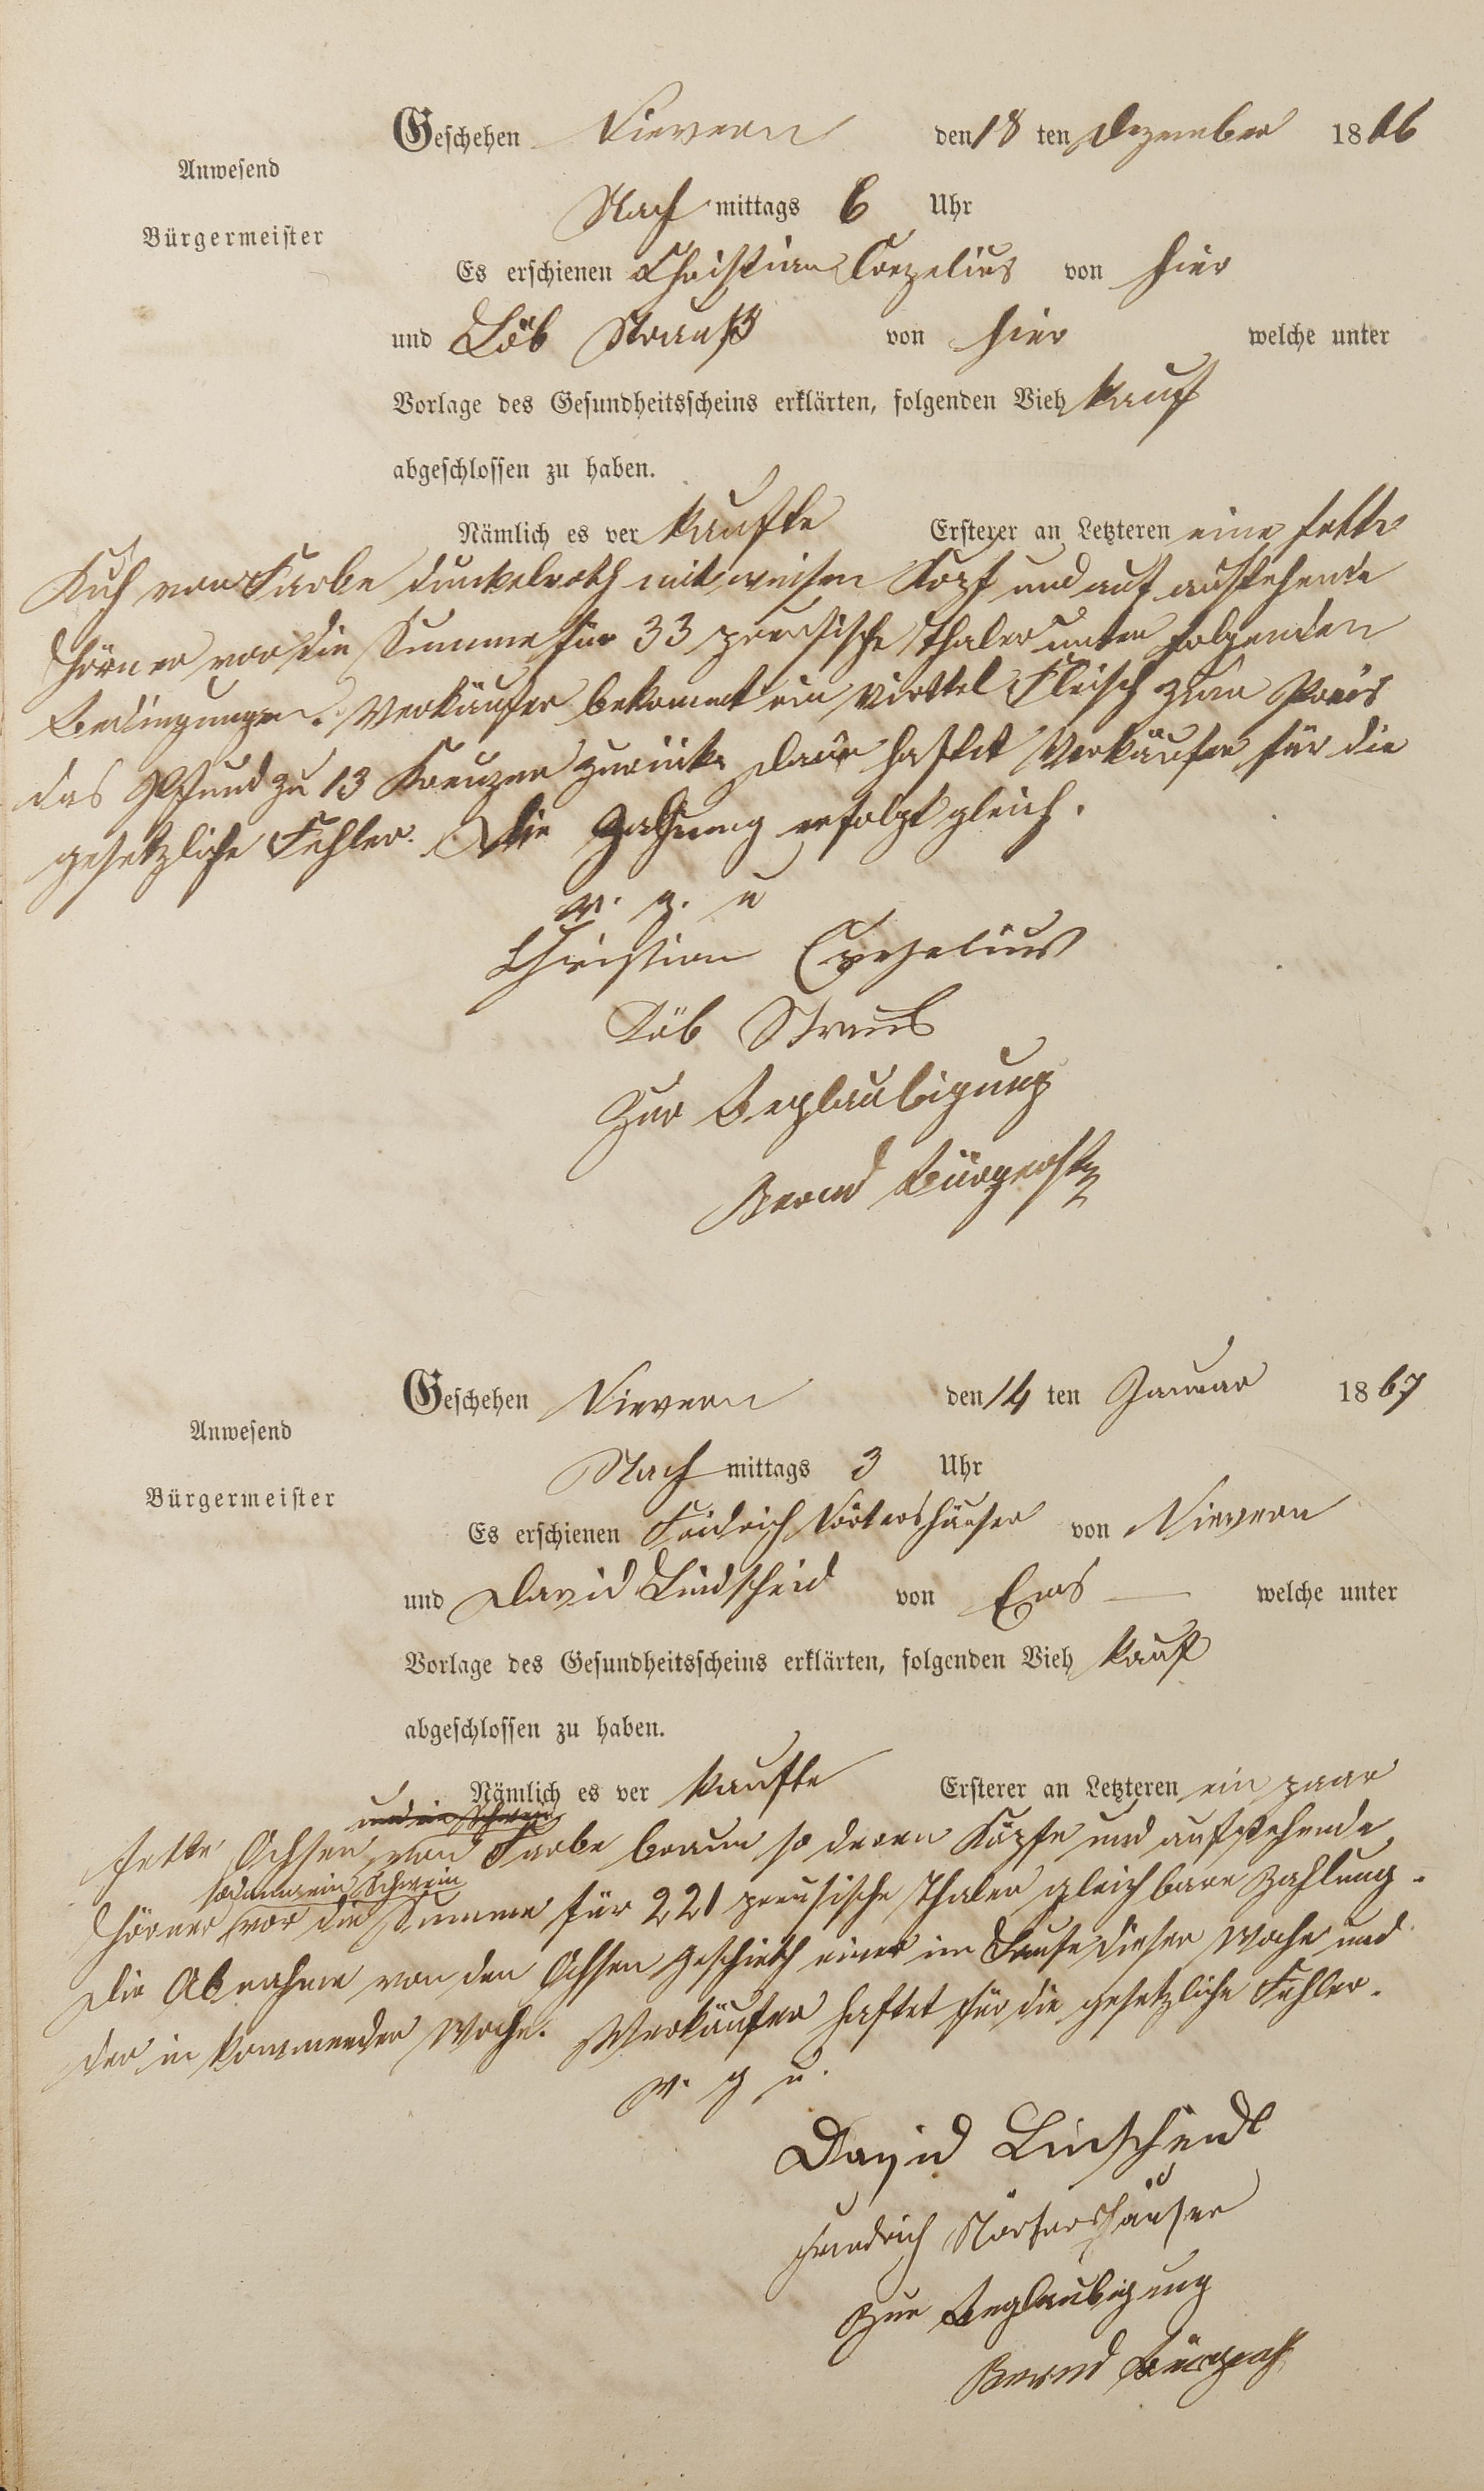 Geschehen Nievern den 18 ten Dezember 1866
Anwesend
Nach mittags 6 Uhr
Bürgermeister
Es erschienen Christian Corzelius von hier
und Löb Strauß von hier welche unter
Vorlage des Gesundheitsscheins erklärten, folgenden Vieh kauf
abgeschlossen zu haben.
Nämlich es ver kaufte Ersterer an Letzteren eine fette
Kuh von Farbe dunkelroth mit weisen Kopf und auf aufstehende
Hörner vor die Summe für 33 preusische Thaler unter folgenden
Bedingungen. Verkäufer bekommt ein Viertel Fleisch zum Preis
das Pfund zu 13 Kreuzer zurück. Dann haftet Verkäufer für die
gesetzliche Fehler. Die Zahlung erfolgt gleich.
v. g. u
Christian Corzelius
Löb Straus
Zur Beglaubigung
Bernd Bürgerstr
Geschehen Nievern den 14 ten Januar 1867
Anwesend
Nach mittags 3 Uhr
Bürgermeister
Es erschienen Friedrich Nörtershäuser von Nievern
und David Lindscheid von Ems welche unter
Vorlage des Gesundheitsscheins erklärten, folgenden Vieh kauf
abgeschlossen zu haben.
Nämlich es ver kaufte Ersterer an Letzteren ein paar
und ein Schwein
fette Ochsen von Farbe braun so deren Köpfe und aufstehende
sodann ein Schwein
Hörner vor die Summe für 221 preusische Thaler gleich bare Zahlung.
Die Abnahme von den Ochsen geschieth einer im Laufe dieser Woche und
der in kommender Woche. Verkäufer haftet für die gesetzliche Fehler.
v. g u.
David Linscheidt
Friedrich Nörtershäuser
Zur Beglaubigung
Bernd Bürgerstr